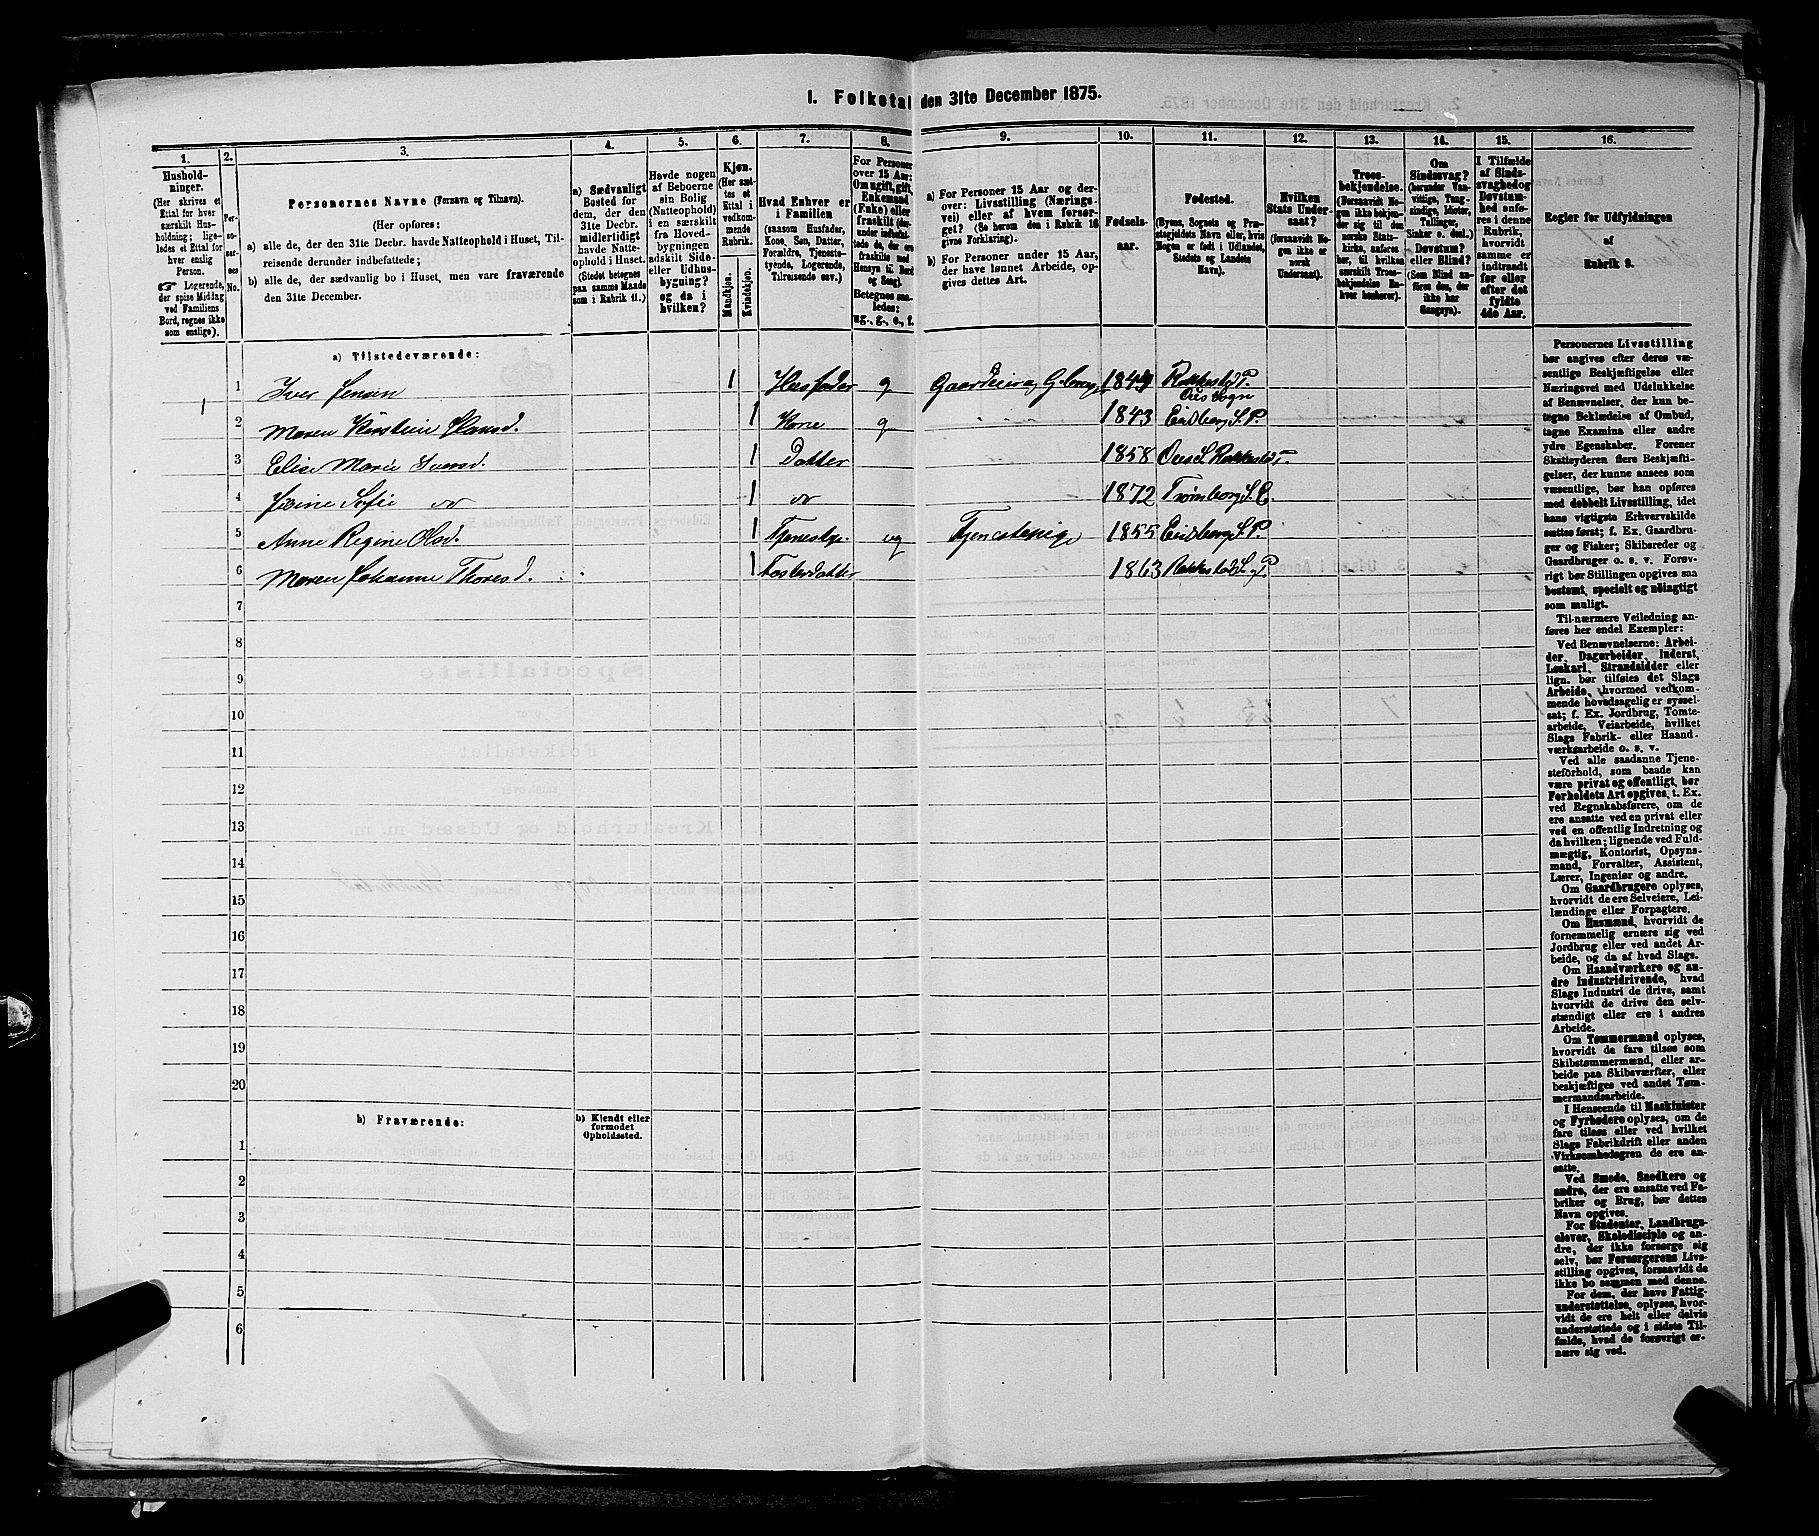 1. Folketal den 31te December 1875.
1.
2.
3.
4.
5.
6.
7.
8.
9.
10.
11.
12.
13.
14.
15.
16.
Hushold-
ninger.
(Her skrives et
Ettal for hver
særskilt Hus-
holdning; lige-
ledes et Ettal for
hver enslig
Person.
☞ Logerende,
der spise Middag
ved Familiens
Bord, regnes ikke
som enslige).
Per-
so-
ner-
nes
No.
Personernes Navne (Fornavn og Tilnavn).
(Her opføres:
a) alle de, der den 31te Decbr. havde Natteophold i Huset, Til-
reisende derunder indbefattede;
b) alle de, der sædvanlig bo i Huset, men vare fraværende
den 31te December.
a) Sædvanligt
Bosted for
dem, der den
31te Decbr.
midlertidigt
havde Natte-
ophold i Huset.
(Stedet betegnes
paa samme Maade
som i Rubrik 11.)
Havde nogen
af Beboerne
sin Bolig
(Natteophold)
i en særskilt
fra Hoved-
bygningen
adskilt Side-
eller Udhus-
bygning?
og da i
hvilken?
Kjøn.
(Her sæt-
tes et
Ettal i
vedkom-
mende
Rubrik.
Mandkjøn.
Kvindekjøn.
Hvad Enhver er
i Familien
(saasom Husfader,
Kone, Søn, Datter,
Forældre, Tjeneste-
tyende, Logerende,
Tilreisende osv.)
For Personer
over 15 Aar:
Om ugift, gift,
Enkemand
(Enke) eller
fraskilt (der-
under indbefat-
tede de, der ere
fraskilte med
Hensyn til Bord
og Seng).
Betegnes saa-
ledes:
ug., g., e., f.
a) For Personer 15 Aar og der-
over: Livsstilling (Nærings-
vei) eller af hvem forsør-
get? (Se herom den i Rubrik 16
givne Forklaring).
b) For Personer under 15 Aar,
der have lønnet Arbeide, op-
gives dettes Art.
Fødsels-
aar.
Fødested.
(Byens, Sognets og Præ-
stegjeldets Navn eller, hvis
Nogen er født i Udlandet,
Stedets og Landets
Navn).
Hvilken
Stats Under-
saat?
(forsaavidt No-
gen ikke er
norsk
Undersaat).
Troes-
bekjendelse.
(forsaavidt No-
gen ikke bekjen-
der sig til den
norske Stats-
kirke, anføres
her, til hvilken
særskilt Troes-
bekjendelse En-
hver henhører).
Om
Sindssvag?
(herunder Van-
vittige, Tung-
sindige, Idioter,
Tullinger,
Sinker o. desl.)
Døvstum?
eller Blind?
(Som Blind an-
føres den, der
ikke har
Gangsyn).
I Tilfælde
af Sinds-
svaghed og
Døvstum-
hed anfø-
res i denne
Rubrik,
hvorvidt
samme er
indtraadt
før eller
efter det
fyldte
4de Aar.
Regler for Udfyldningen
af
Rubrik 9.
a) Tilstedeværende:
1 1 Iver Jensen 1 Husfader g Gaardeier og Gbrug 1844 Rakkestad P. Øies Sogn
2 Maren Kirstein Hansd. 1 Kone g 1843 Eidsberg S. P.
3 Elise Marie Iversd. 1 Datter 1858 Øies S. Rakkestad P.
4 Josine Sofie do 1 do 1872 Trømborg S. E.
5 Anne Regine Olsd. 1 Tjenesty. ug Tjenestepige 1855 Eidsberg S. P.
6 Maren Johanne Thoresd. 1 Fosterdatter 1863 Rakkestad S. og P.
7
8
9
10
11
12
13
14
15
16
17
18
19
20
b) Fraværende:
b) Kjendt eller
formodet
Opholdssted.
1
2
3
4
5
6
Personernes Livsstilling
bør angives efter deres væ-
sentlige Beskjæftigelse eller
Næringsvei med Udelukkelse
af Benævnelser, der kun be-
tegne Beklædelse af Ombud,
tagne Examina eller andre
ydre Egenskaber. Forener
Skatteyderen flere Beskjæfti-
gelser, der kunne ansees som
væsentlige, bør han opføres
med dobbelt Livsstilling, idet
hans vigtigste Erhvervskilde
sættes først; f. Ex. Gaardbru-
ger og Fisker; Skibsreder og
Gaardbruger o. s. v. Forøv-
rigt bør Stillingen opgives saa
bestemt, specielt og nøiagtigt
som muligt.
Til nærmere Veiledning an-
føres her endel Exempler:
Ved Benævnelserne: Arbei-
der, Dagarbeider, Inderst,
Løskarl, Strandsidder eller
lign. bør tilføies det Slags
Arbeide, hvormed vedkom-
mende hovedsagelig er syssel-
sat; f. Ex. Jordbrug, Tomte-
arbeide, Veiarbeide, hvilket
Slags Fabrik- eller Haand-
værksarbeide o. s. v.
Ved alle saadanne Tjene-
steforhold, som baade kan
være privat og offentligt, bør
Forholdets Art opgives, t. Ex.
ved Regnskabsførere, om de
ere ansatte ved en privat eller
ved en offentlig Indretning og
da hvilken; lignende ved Fuld-
mægtig, Kontorist, Opsyns-
mand, Forvalter, Assistent,
Lærer, Ingeniør og andre.
Om Gaardbrugere oplyses,
hvorvidt de ere Selveiere, Lei-
lændinge eller Forpagtere.
Om Husmænd, hvorvidt de
fornemmelig ernære sig ved
Jordbrug eller ved andet Ar-
beide, og da af hvad Slags.
Om Haandværkere og an-
dre Industridrivende, hvad
Slags Industri de drive, samt
hvorvidt de drive den selv-
stændigt eller ere i andres
Arbeide.
Om Tømmermænd oplyses,
hvorvidt de fare tilsøs som
Skibstømmermænd, eller ar-
beide paa Skibsværfter, eller
beskjæftiges ved andet Tøm-
mermandsarbeide.
I Henseende til Maskinister
og Fyrbødere oplyses, om de
fare tilsøs eller ved hvilket
Slags Fabrikdrift eller anden
Virksomhedsgren de ere an-
satte.
Ved Smede, Snedkere og
andre, der ere ansatte ved Fa-
briker og Brug, bør dettes
Navn opgives.
For Studenter, Landbrugs-
elever, Skoledisciple og an-
dre, der ikke forsørge sig
selv, bør Forsørgerens Livs-
stilling opgives, forsaavidt de
ikke bo sammen med denne.
For dem, der have Fattig-
understøttelse, oplyses, hvor-
vidt de ere helt eller delvis
understøttede og i sidste Til-
fælde, hvad de forøvrigt er-
nære sig ved.